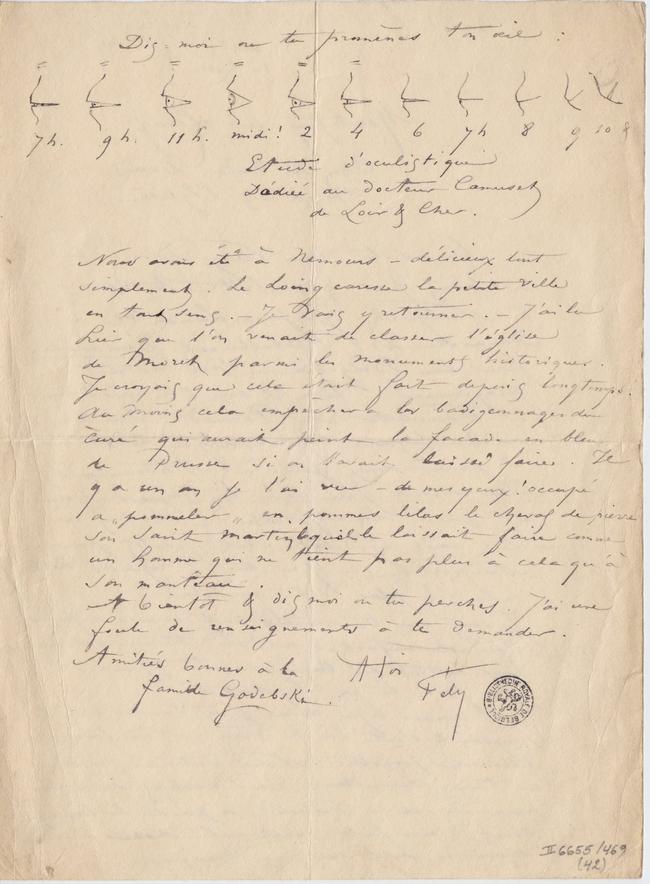 Dis-moi ou tu promènes ton œil :
7 h. 9 h. 11 h. midi! 2 4 6 7h 8 9 10
Etude d'oculistique
Dédiée au docteur Camuset
de Loir & Cher.
Nous avons été à Nemours – délicieux tout
simplement. Le Loing caresse la petite ville
en tout sens. – Je vais y retourner. – J'ai lu
hier que l'on venait de classer l'église
de Moret parmi les monuments historiques.
Je croyais que cela était fait depuis longtemps.
Au moins cela empêchera les badigeonnages du
curé qui aurait peint la façade en bleu
de Prusse si on l'avait laissé faire. Il
y a un an je l'ai vu – de mes yeux! occupé
à "pommeler" en pommes lilas le cheval de pierre
son Saint Martin lequel le laissait faire comme
un homme qui ne tient pas plus à cela qu'à
son manteau.
A bientôt & dis moi ou tu perches. J'ai une
foule de renseignements à te demander.
Amitiés bonnes à la A toi
famille Godebski. Fély
BIBLIOTHÈQUE ROYALE DE BELGIQUE
II 6655/469
(42)